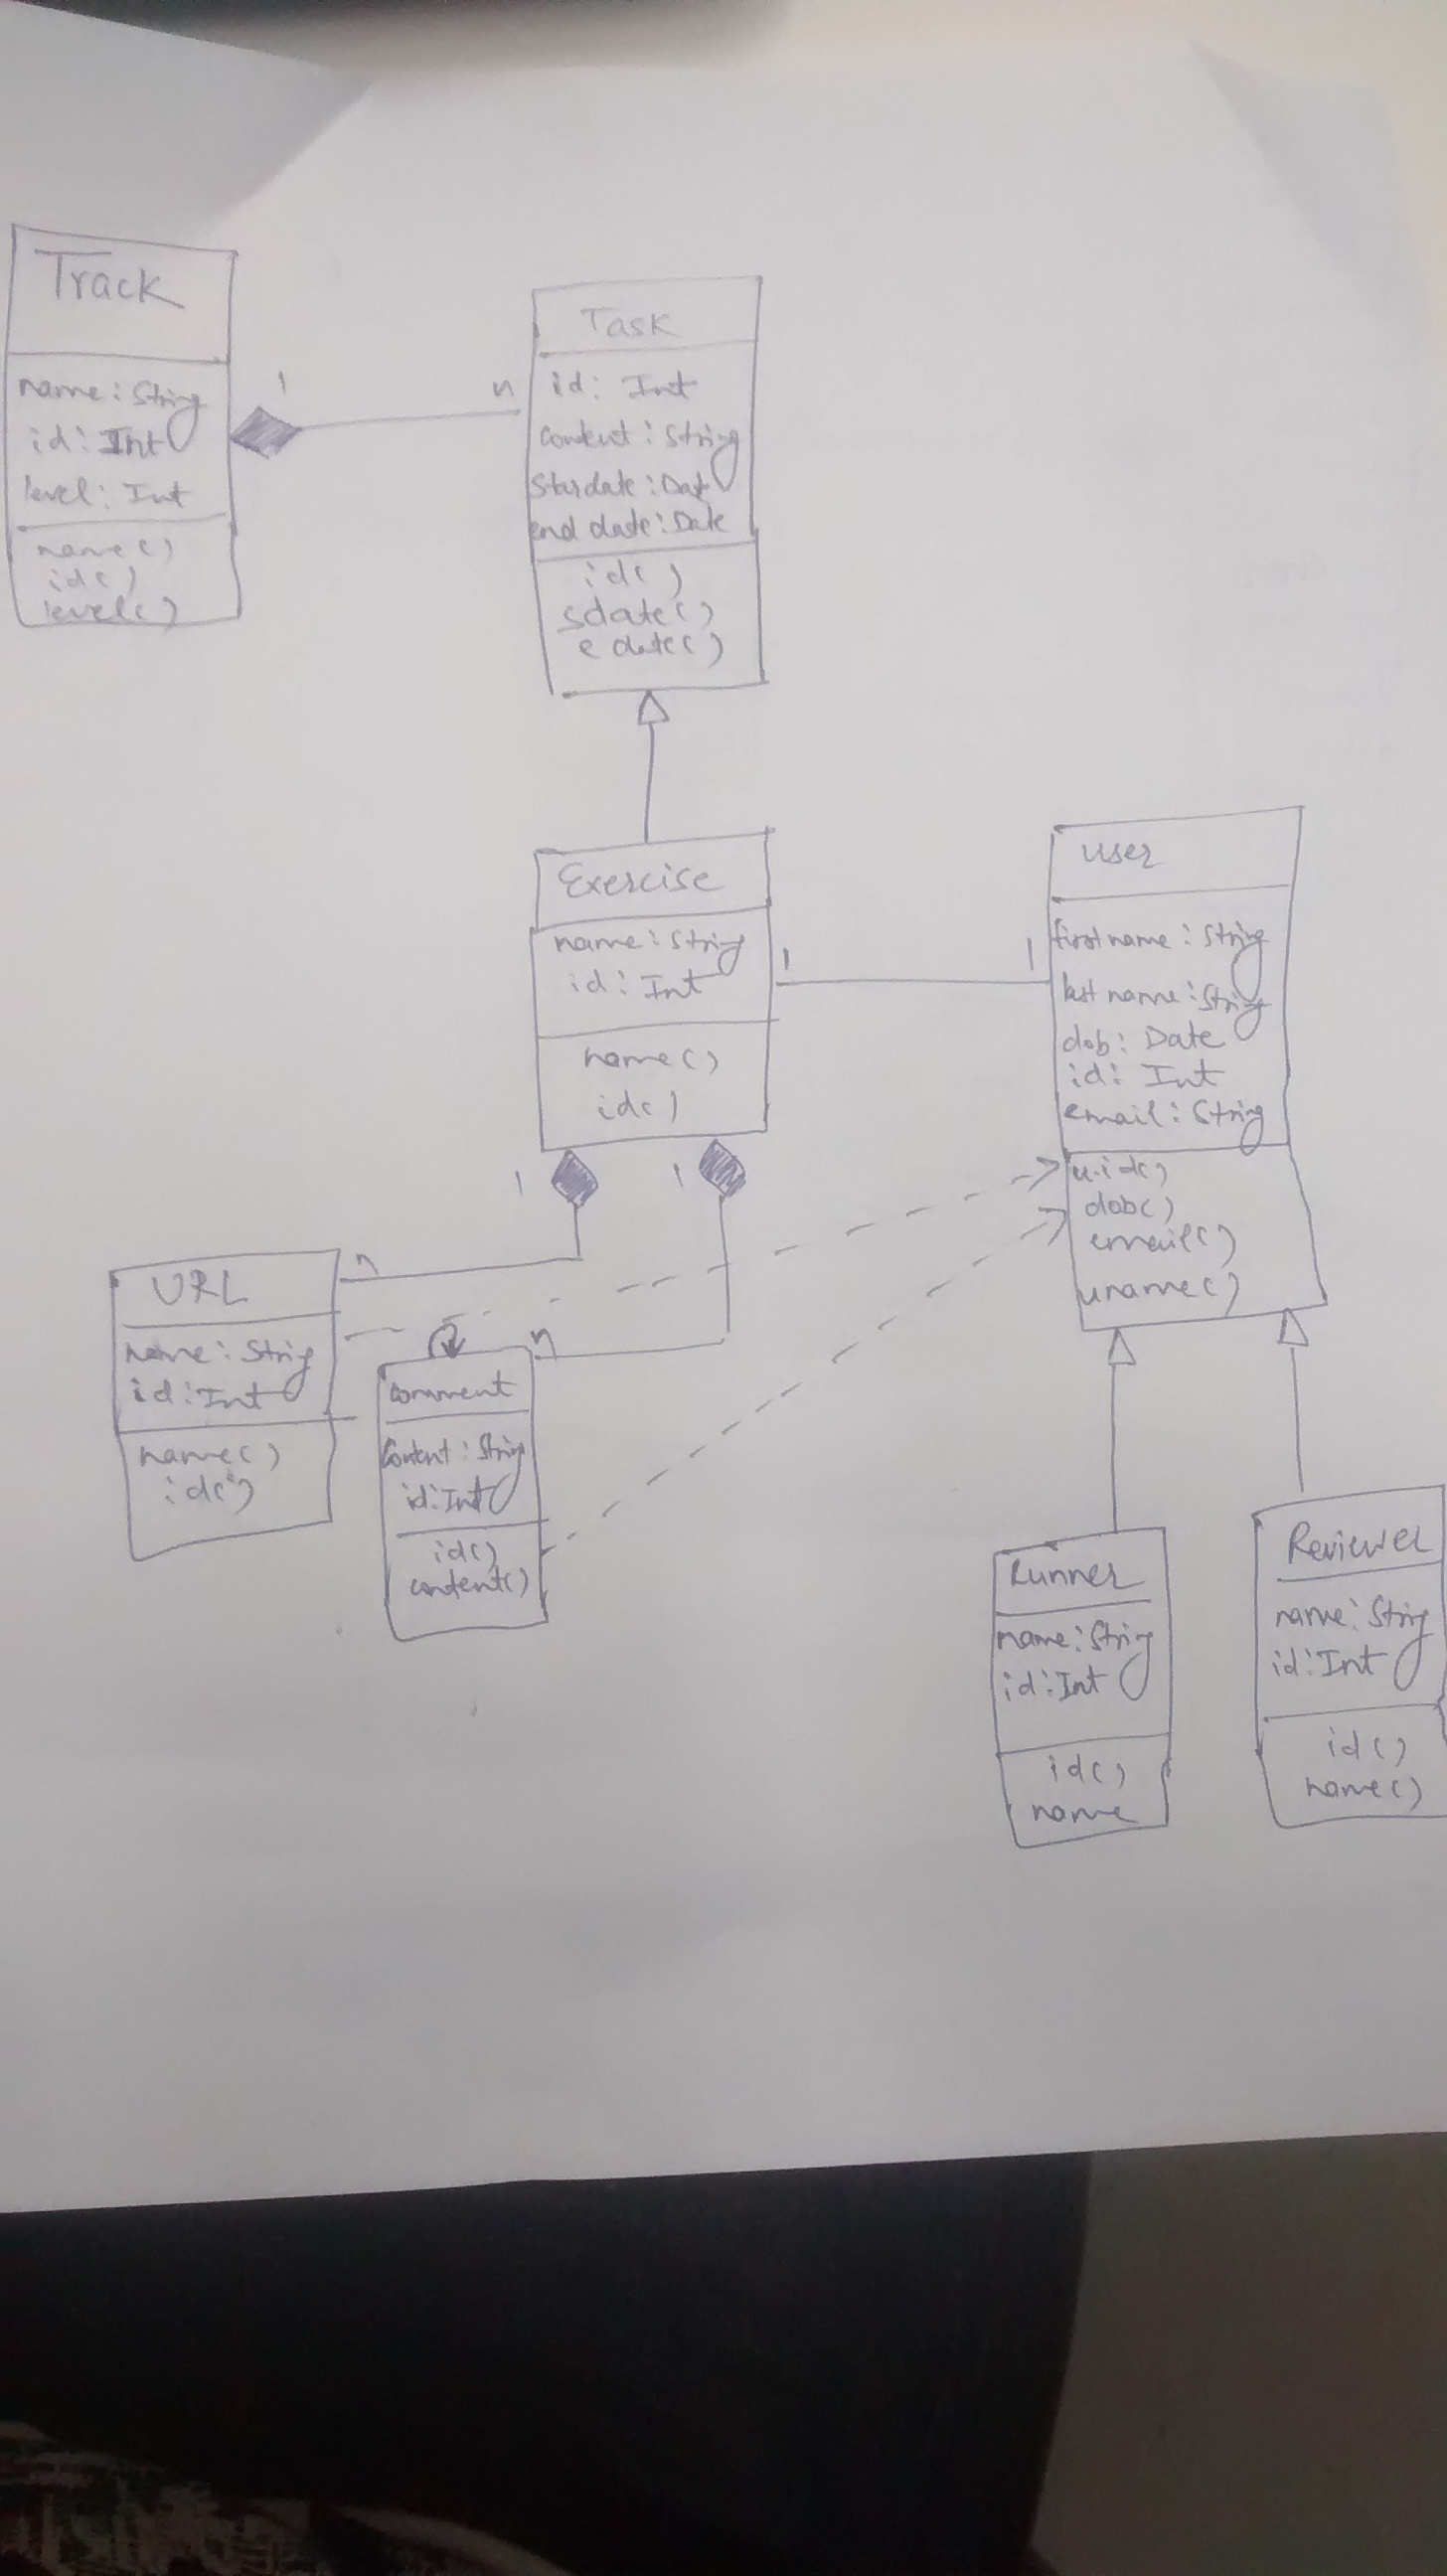 Track
name : String
id : Int
level : Int
name()
id()
level()
1
n
Task
id : Int
content : String
Stardate : Dat
end date : Date
id()
sdate()
e date()
Exercise
name : String
id : Int
name()
id()
1
1
user
first name : String
last name : String
dob : Date
id : Int
email : String
u.id()
dob()
email()
uname()
1
1
n
n
URL
name : String
id : Int
name()
id()
comment
Content : String
id : Int
id()
content()
Runner
name : String
id : Int
id()
name
Reviewer
name : String
id : Int
id()
name()